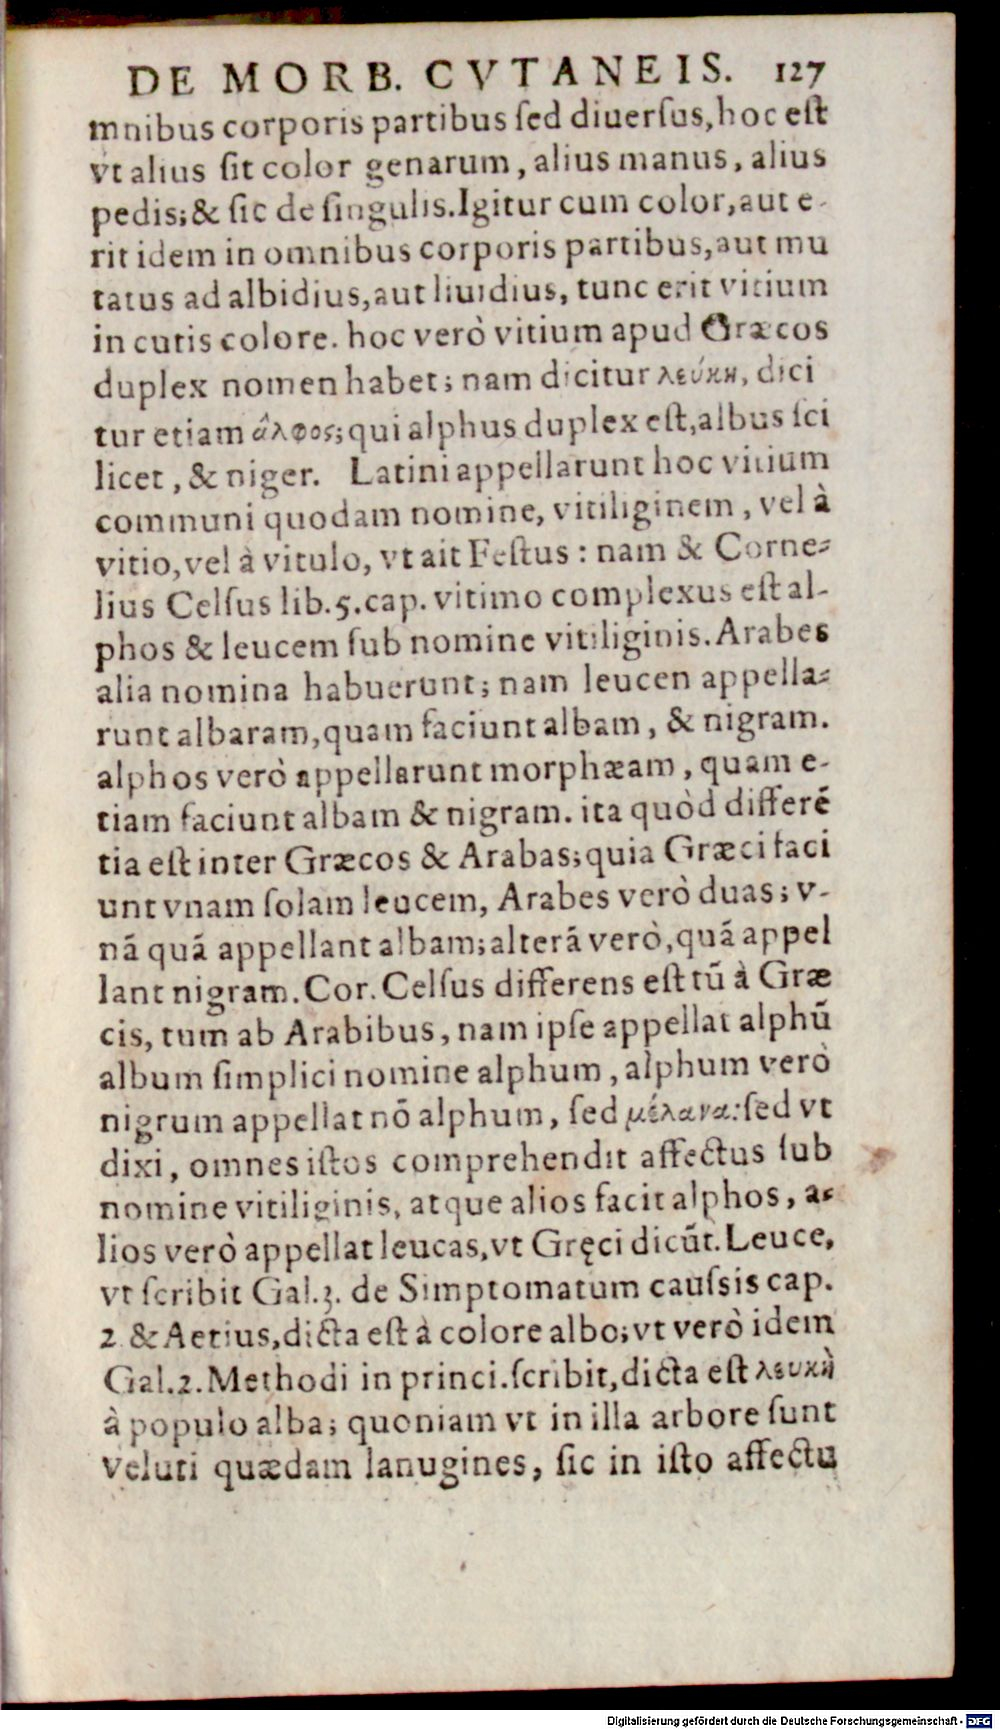 DE MORB. CVTANEIS. 127
mnibus corporis partibus ſed diuerſus, hoc eſt
vt alius ſit color genarum, alius manus, alius
pedis; & ſic de ſingulis. Igitur cum color, aut e-
rit idem in omnibus corporis partibus, aut mu
tatus ad albidius, aut liuidius, tunc erit vitium
in cutis colore. hoc verò vitium apud Græcos
duplex nomen habet; nam dicitur λεύκη, dici
tur etiam ἀλφος; qui alphus duplex eſt, albus ſci
licet, & niger. Latini appellarunt hoc vitium
communi quodam nomine, vitiliginem, vel à
vitio, vel à vitulo, vt ait Feſtus: nam & Corne-
lius Celſus lib. 5. cap. vltimo complexus eſt al-
phos & leucem ſub nomine vitiliginis. Arabes
alia nomina habuerunt; nam leucen appella-
runt albaram, quam faciunt albam, & nigram.
alphos verò appellarunt morphæam, quam e-
tiam faciunt albam & nigram. ita quòd differẽ
tia eſt inter Græcos & Arabas; quia Græci faci
unt vnam ſolam leucem, Arabes verò duas; v-
nã quã appellant albam; alterã verò, quã appel
lant nigram. Cor. Celſus differens eſt tũ à Græ
cis, tum ab Arabibus, nam ipſe appellat alphũ
album ſimplici nomine alphum, alphum verò
nigrum appellat nõ alphum, ſed μέλανα: ſed vt
dixi, omnes iſtos comprehendit affectus ſub
nomine vitiliginis, atque alios facit alphos, a-
lios verò appellat leucas, vt Gręci dicũt. Leuce,
vt ſcribit Gal. 3. de Simptomatum cauſsis cap.
2 & Aetius, dicta eſt à colore albo; vt verò idem
Gal. 2. Methodi in princi. ſcribit, dicta eſt λευκὴ
à populo alba; quoniam vt in illa arbore ſunt
veluti quædam lanugines, ſic in iſto affectu
Digitalisierung gefördert durch die Deutsche Forschungsgemeinschaft - DFG